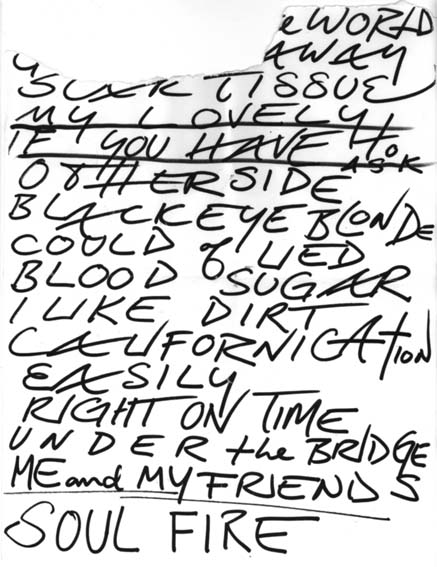 WORLD
AWAY
SCAR TISSUE
MY LOVELY
IF YOU HAVE to ASK
OTHERSIDE
BLACKEYE BLONDE
COULD of LIED
BLOOD SUGAR
I LIKE DIRT
CALIFORNICAtION
EASILY
RIGHT ON TIME
UNDER the BRIDGE
ME and MY FRIENDS
SOUL FIRE